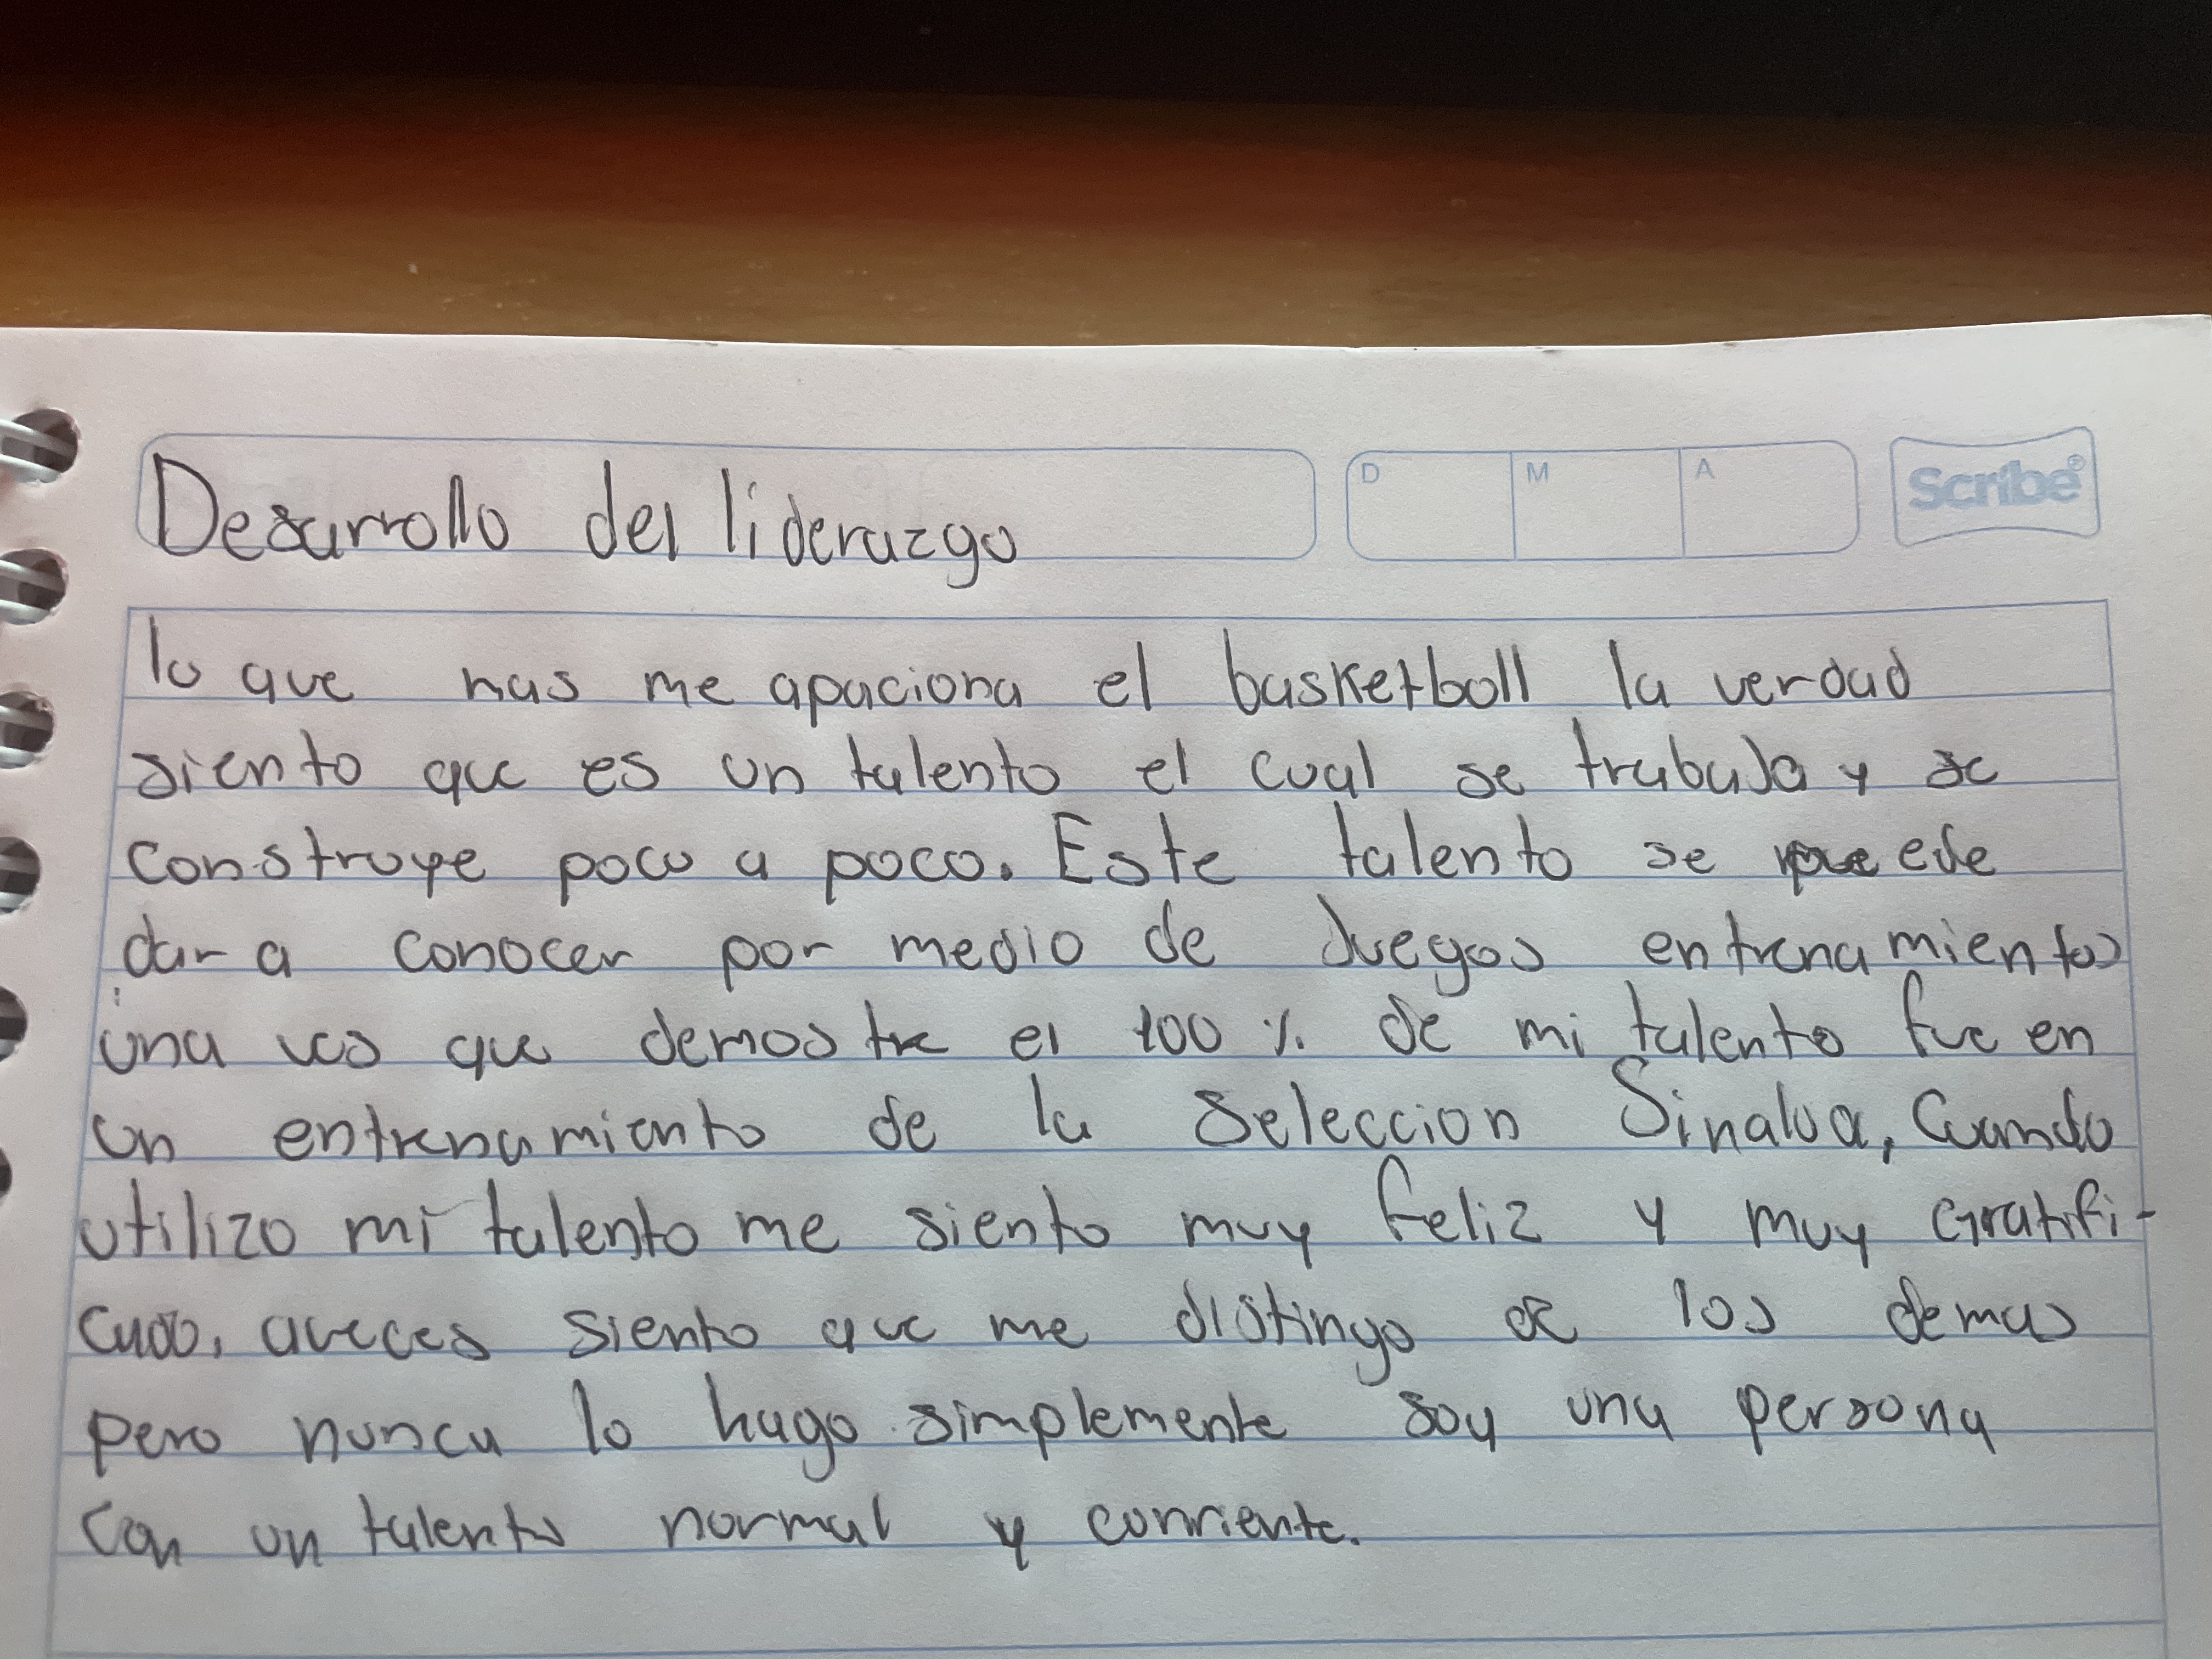 Desarrollo del liderazgo
D M A
Scribe®
lo que mas me apaciona el basketboll la verdad
siento que es un talento el cual se trabaja y se
construye poco a poco. Este talento se puede
dar a conocer por medio de Juegos entrenamientos
una ves que demostre el 100 % de mi talento fue en
un entrenamiento de la Seleccion Sinaloa, Cuando
utilizo mi talento me siento muy feliz y muy Gratifi-
cado, aveces siento que me distingo de los demas
pero nunca lo hago simplemente soy una persona
con un talento normal y corriente.